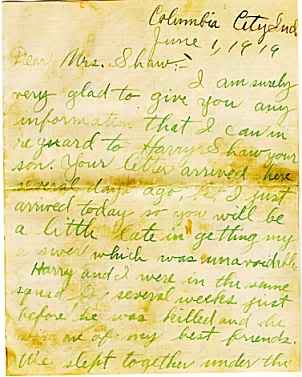 Columbia City Ind.
June 1, 1919
Dear Mrs. Shaw:-
I am surely
very glad to give you any
information that I can in
reguard to Harry Shaw your
son. Your letter arrived here
several days ago, but I just
arrived today so you will be
a little late in getting my
answer which was unavoidable
Harry and I were in the same
squad for several weeks just
before he was killed and he
was one of my best friends.
We slept together under the